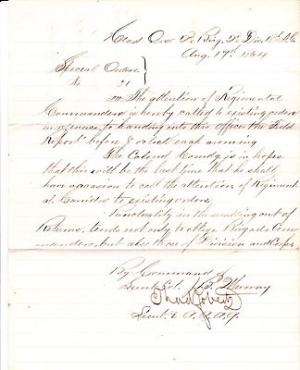 Head Qrs 2d Brig. 2d Div. 18th A.C.
Aug. 17th 1864
Special Orders
No 21
The attention of Regimental
Commanders is hereby called to existing orders
in reference to handing into this office the Field
Report before 8 o'clock each morning
The Colonel Comdg. is in hopes
that this will be the last time that he shall
have occasion to call the attention of Regiment
al Comd'rs to existing orders.
in the making out of
Returns tends not only to Brigade Com
manders, but also those of Division and Corps
By Command of
Lieut Col. Murray
Lieut. & A.A.A.G.